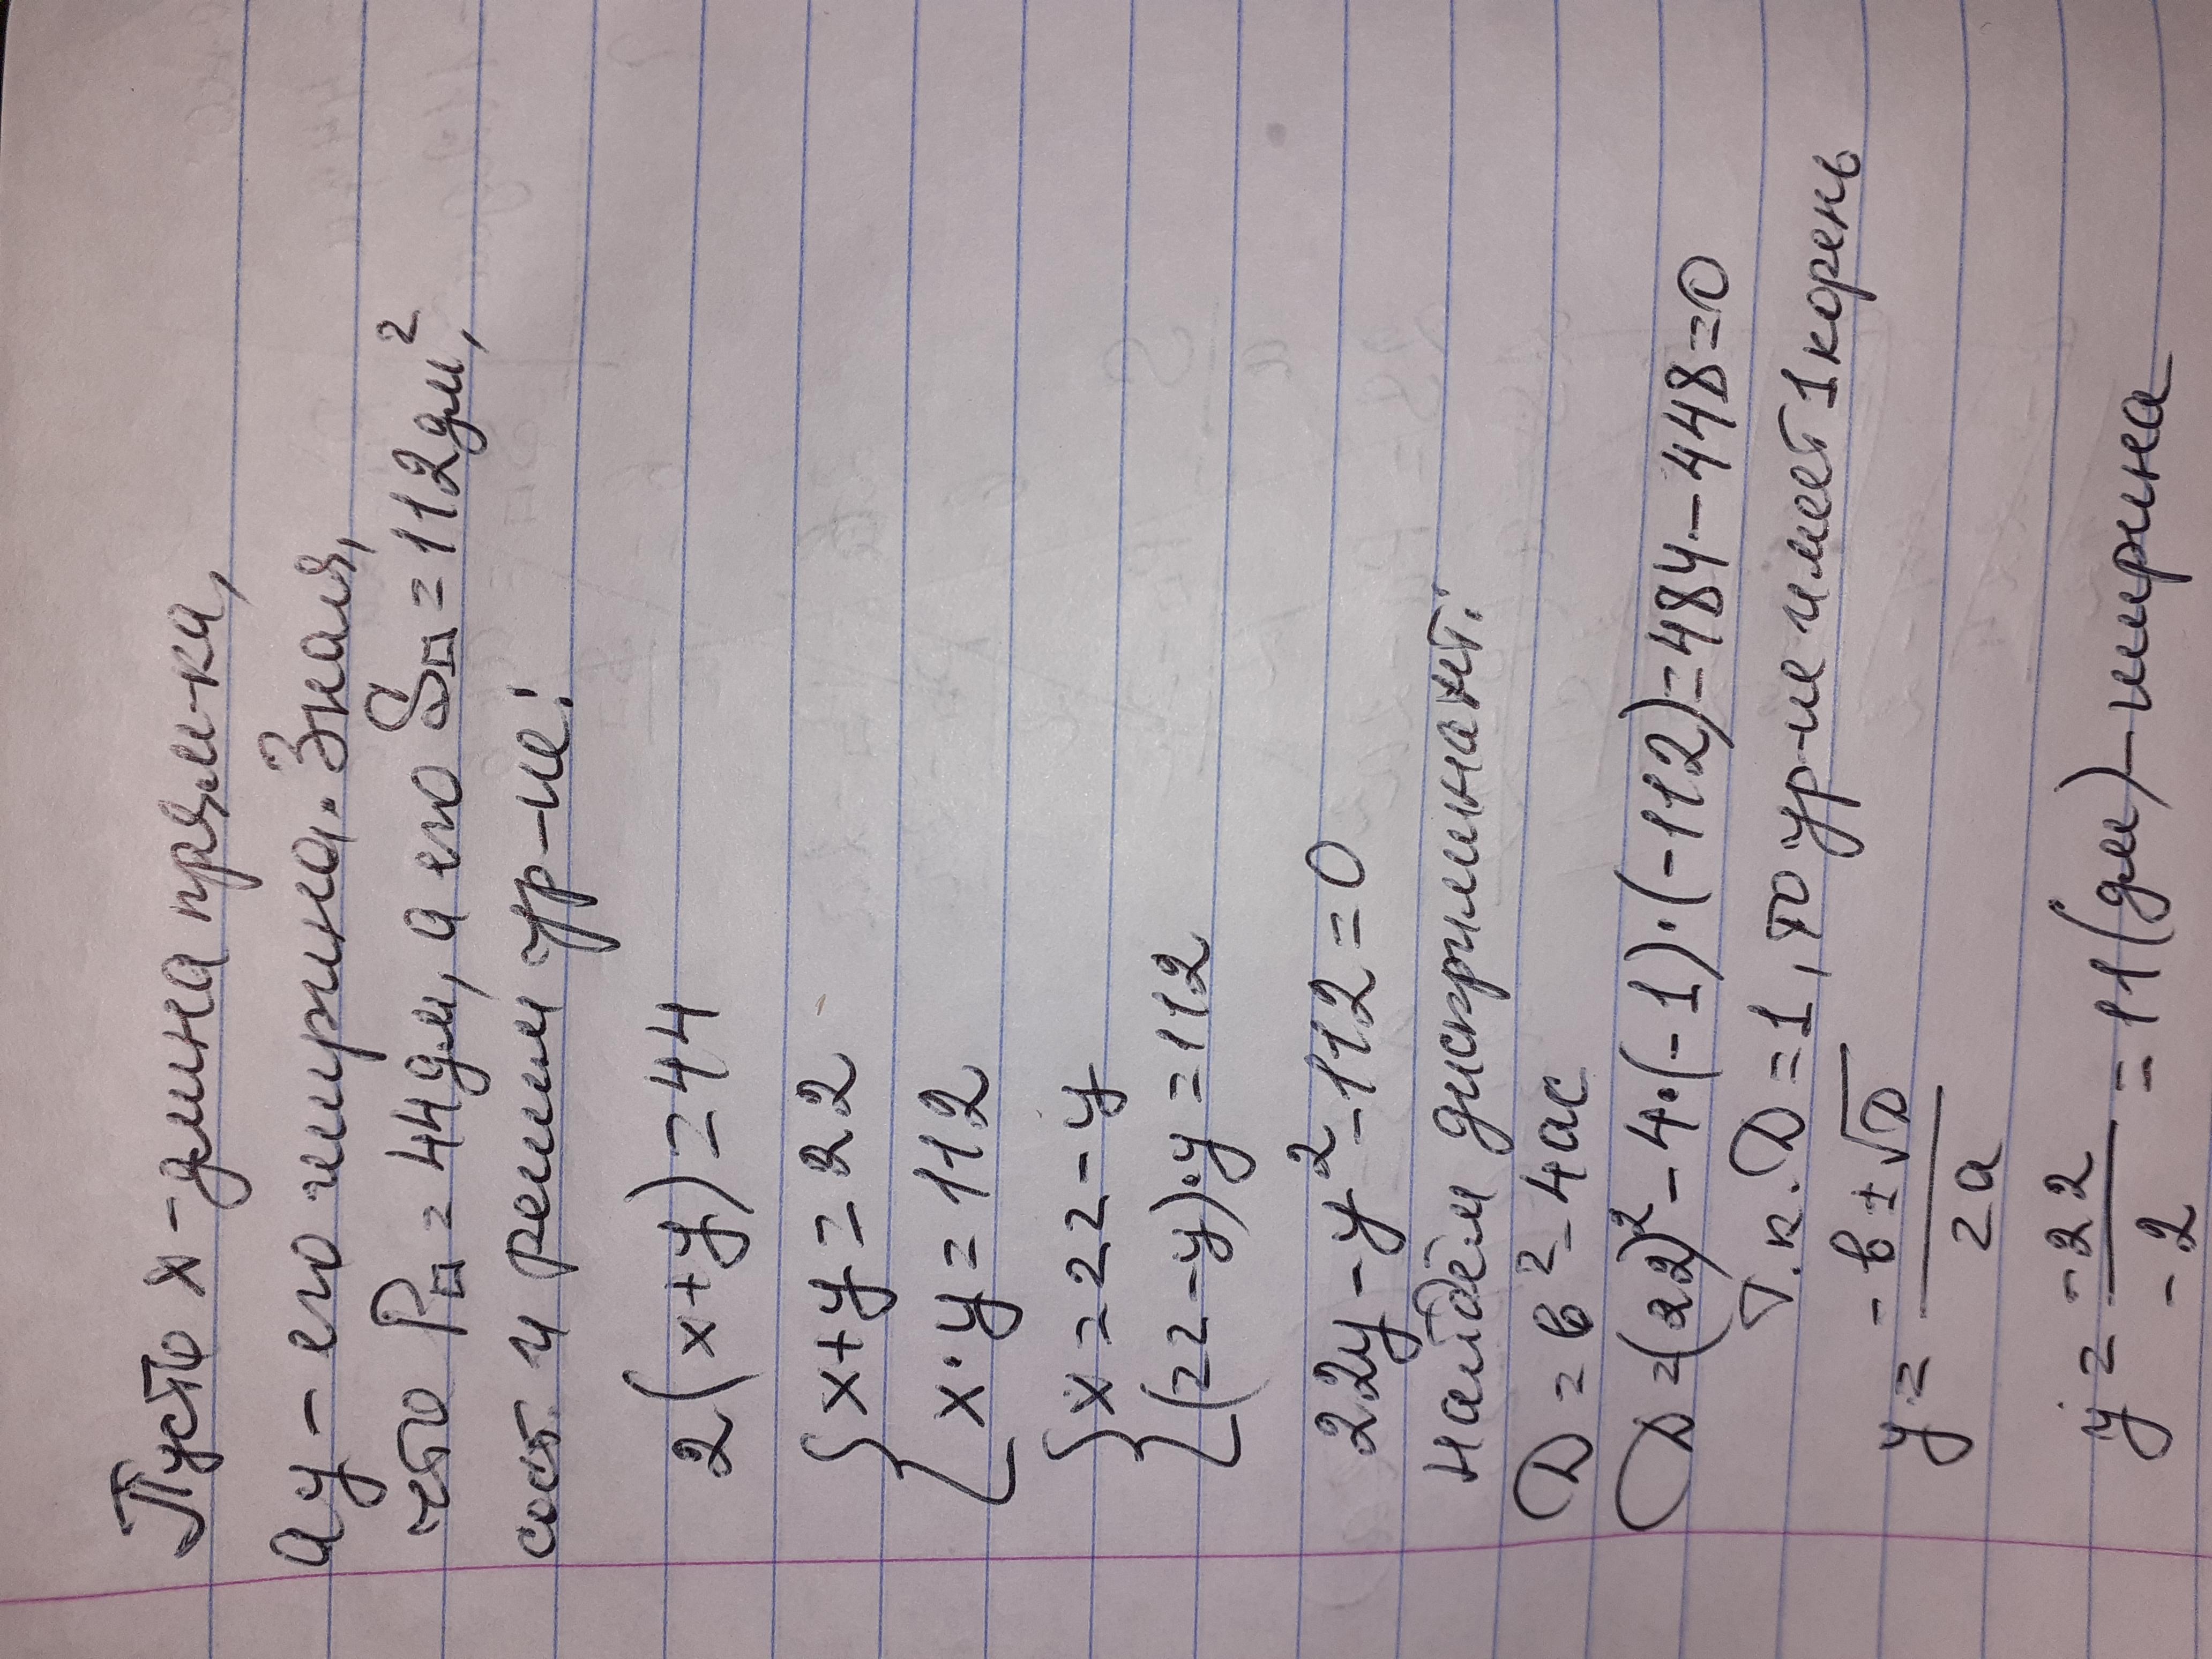 Пусть x - длина прям-ка,
а y - его ширина. Зная,
что P▭ = 44дм, а его S▭ = 112дм²,
сост. и решим ур-ие:
2(x+y)=44
{x+y=22
{x·y=112
{x=22-y
{(22-y)·y=112
22y-y²-112=0
Найдём дискриминант:
D=b²-4ac
D=(22)²-4·(-1)·(-112)=484-448=0
Т.к. D=1, то ур-ие имеет 1 корень
y = (-b±√D)/2a
y = -22/-2 = 11(дм)-ширина